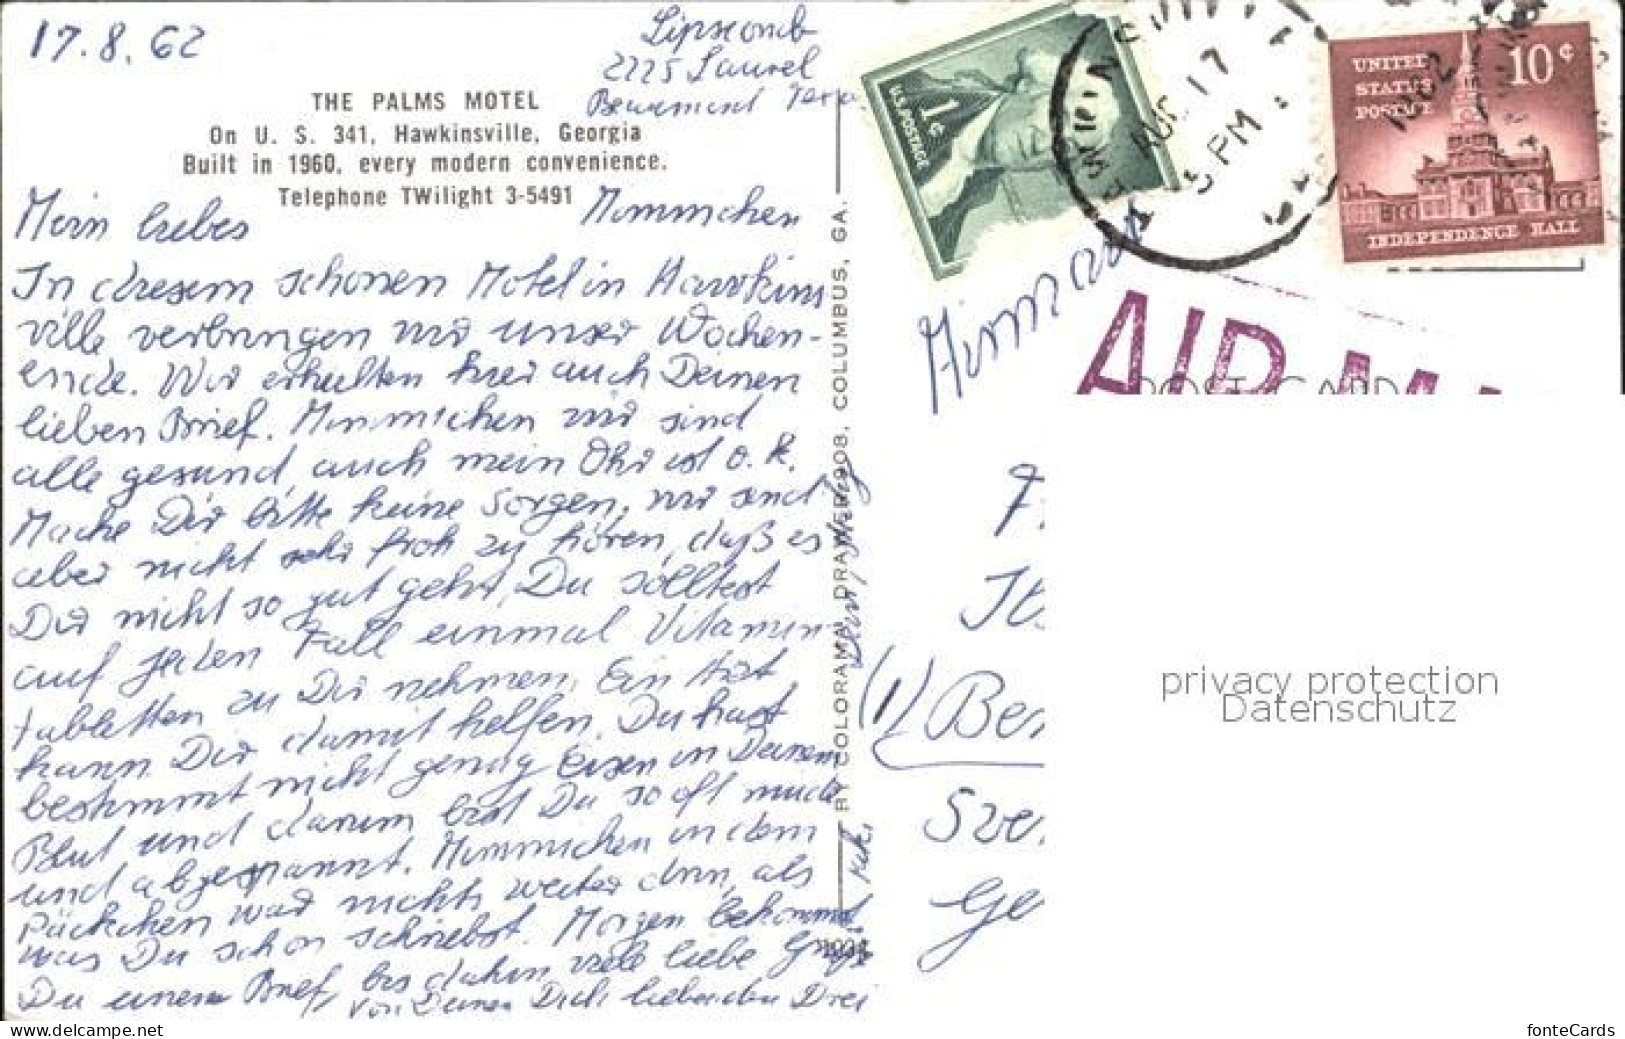 17.8.62
Lipscomb
2225 Laurel
Beaumont Texas
THE PALMS MOTEL
On U. S. 341, Hawkinsville, Georgia
Built in 1960, every modern convenience.
Telephone TWilight 3-5491
Mein liebes Mommichen
In diesem schönen Motel in Hawkins
ville verbringen wir unser Wochen-
ende. Wir erhielten hier auch Deinen
lieben Brief. Mommichen wir sind
alle gesund, auch mein Ohr ist o.k.
Mache Dir bitte keine Sorgen, wir sind
aber nicht sehr froh zu hören, daß es
Dir nicht so gut geht. Du solltest
auf jeden Fall einmal Vitamin-
tabletten zu Dir nehmen. Ein Arzt
kann Dir damit helfen. Du hast
bestimmt nicht genug Eisen in Deinem
Blut und darum bist Du so oft müde
und abgespannt. Mommichen in dem
Päckchen war nichts weiter drin, als
was Du schon schriebst. Morgen bekommst
Du einen Brief, bis dahin viele liebe Grüße
von Deinen Dich liebenden Drei
BY COLORAMA, DRAWER 908, COLUMBUS, GA.
U.S. POSTAGE
1¢
AUG 17
5 PM
1962
UNITED
STATES
POSTAGE
10¢
INDEPENDENCE HALL
AIR MA
POST CARD
(1) Ber
Ge
privacy protection
Datenschutz
www.delcampe.net
fonteCards